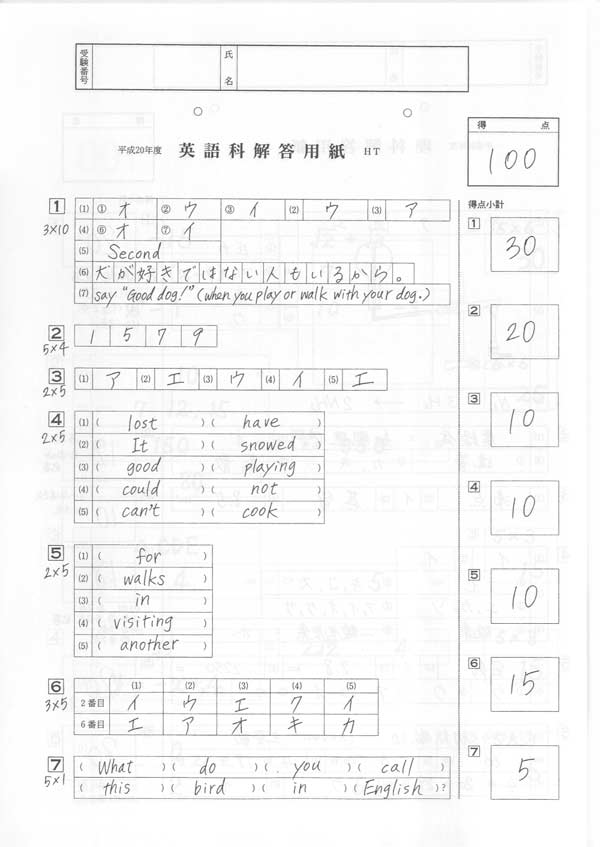 受験番号 氏名
平成20年度 英語科解答用紙 HT
得点
100
得点小計
1 3×10
(1) ① オ ② ウ ③ イ (2) ウ (3) ア
(4) ⑥ オ ⑦ イ
(5) Second
(6) 犬が好きではない人もいるから。
(7) say "Good dog!" (when you play or walk with your dog.)
1 30
2 5×4
1 5 7 9
2 20
3 2×5
(1) ア (2) エ (3) ウ (4) イ (5) エ
3 10
4 2×5
(1) ( lost ) ( have )
(2) ( It ) ( snowed )
(3) ( good ) ( playing )
(4) ( could ) ( not )
(5) ( can't ) ( cook )
4 10
5 2×5
(1) ( for )
(2) ( walks )
(3) ( in )
(4) ( visiting )
(5) ( another )
5 10
6 3×5
(1) (2) (3) (4) (5)
2番目 イ ウ エ ク イ
6番目 エ ア オ キ カ
6 15
7 5×1
( What ) ( do ) ( you ) ( call )
( this ) ( bird ) ( in ) ( English )?
7 5